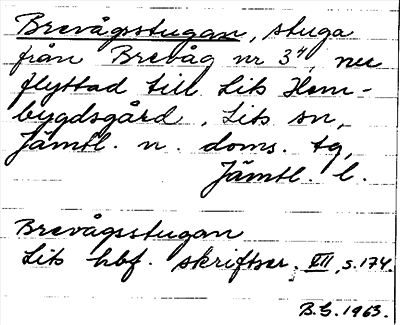 Brevågsstugan, stuga
från Brevåg nr 3⁴, nu
flyttad till Lits Hem-
bygdsgård, Lits sn,
Jämtl. n. doms. tg,
Jämtl. l.
Brevågsstugan
Lits hbf. skriftser. VII, s. 174.
B.G. 1963.